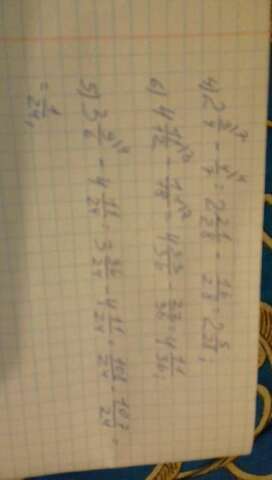 4) 2 3/4 \7 - 4/7 \4 = 2 21/28 - 16/28 = 2 5/28;
6) 4 11/12 \3 - 11/18 \2 = 4 33/36 - 22/36 = 4 11/36;
5) 3 9/6 \4 - 4 11/24 = 3 36/24 - 4 11/24 = 108/24 - 107/24 =
= 1/24;